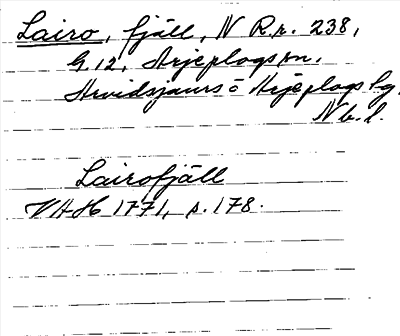 Lairo, fjäll, N R.r. 238,
G.12, Arjeplogs sn.
Arvidsjaurs o Arjeplogs lg,
Nb.l.
Lairofjäll
VAH 1771, s. 178.